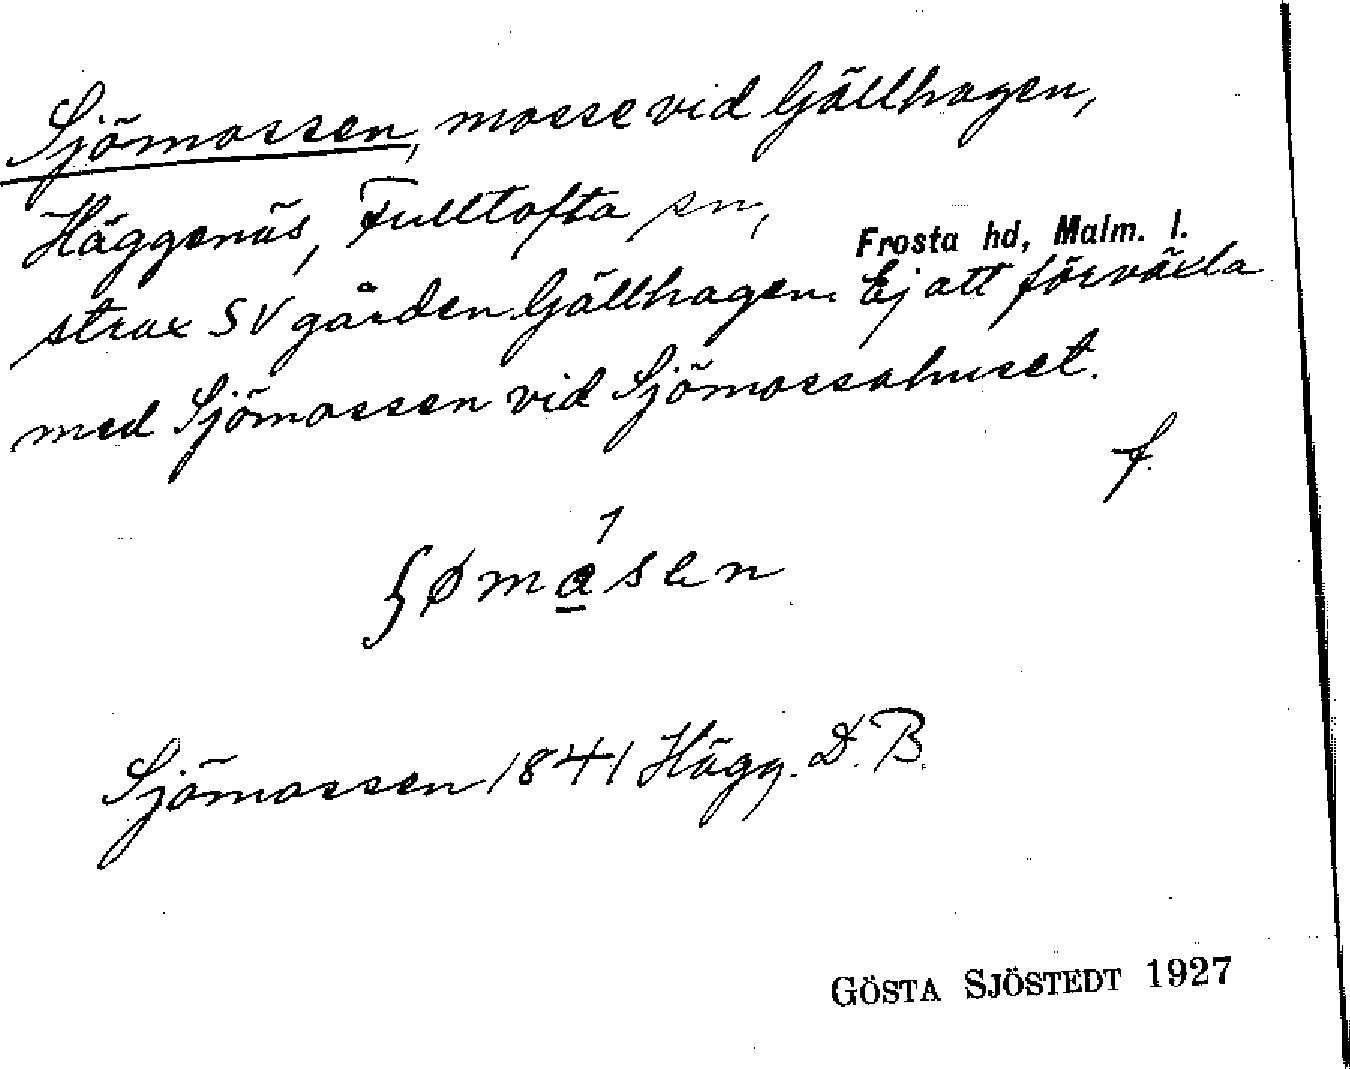 Sjömossen, mosse vid Gällhagen,
Häggenäs, Fulltofta sn, Frosta hd, Malm. l.
strax SV gården Gällhagen. Ej att förväxla
med Sjömossen vid Sjömossahuset.
f.
Sjömossen 1841 Hägg. D. B.
GÖSTA SJÖSTEDT 1927